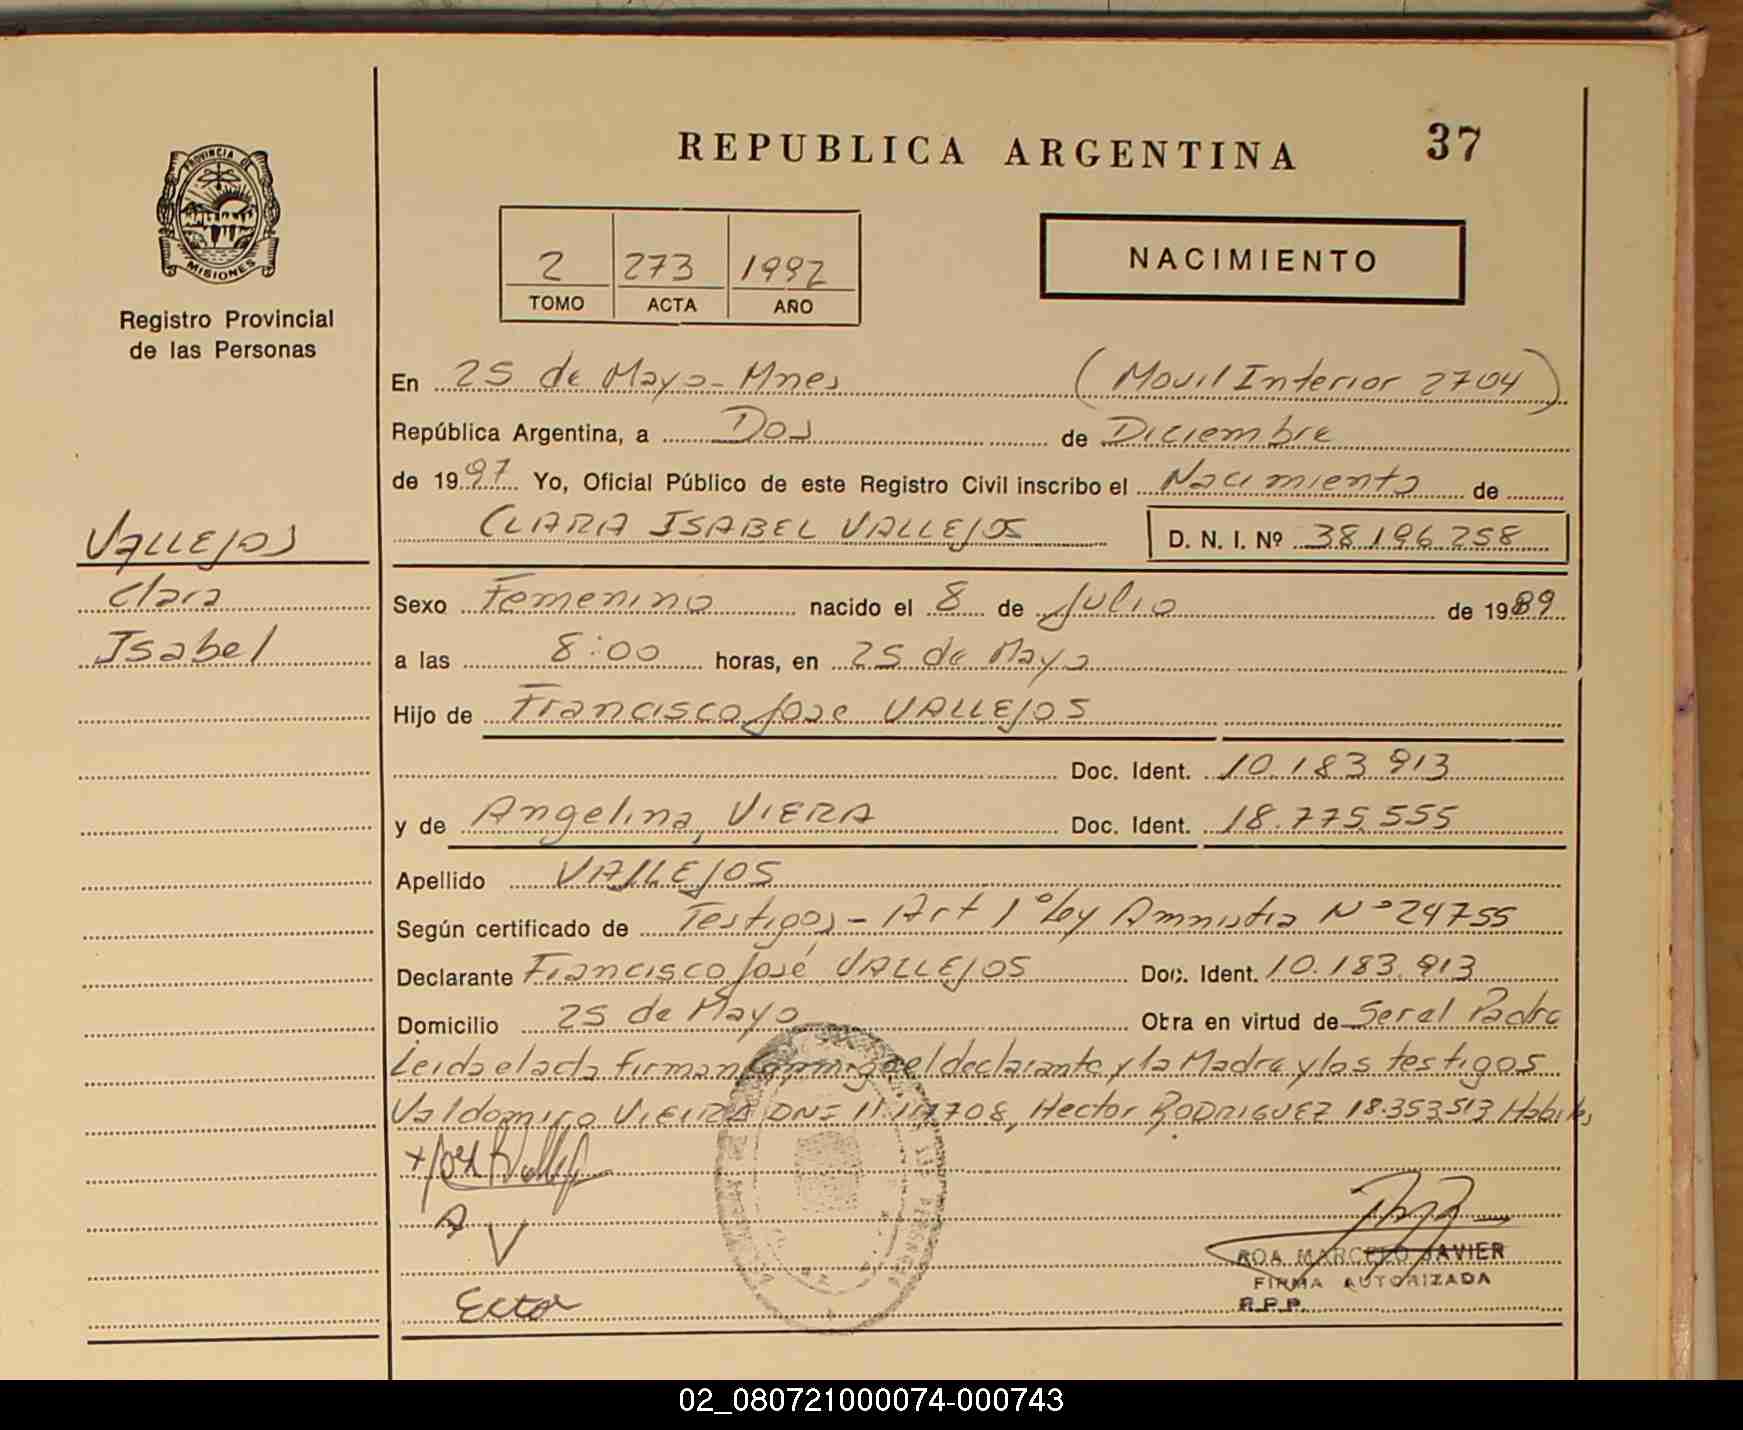 REPUBLICA ARGENTINA 37
PROVINCIA DE
MISIONES
Registro Provincial
de las Personas
2 273 1997
TOMO ACTA AÑO
NACIMIENTO
En 25 de Mayo - Mnes (Movil Interior 2704)
República Argentina, a Dos de Diciembre
de 1997 Yo, Oficial Público de este Registro Civil inscribo el Nacimiento de
CLARA ISABEL VALLEJOS D. N. I. Nº 38.196.258
VALLEJOS
Clara
Isabel
Sexo Femenino nacido el 8 de Julio de 1989
a las 8:00 horas, en 25 de Mayo
Hijo de Francisco Jose VALLEJOS
Doc. Ident. 10.183.913
y de Angelina, VIERA Doc. Ident. 18.775.555
Apellido VALLEJOS
Según certificado de Testigos - Art 1º Ley Amnistia Nº 24755
Declarante Francisco José VALLEJOS Doc. Ident. 10.183.913
Domicilio 25 de Mayo Obra en virtud de Ser el Padre
Leida el acta firman conmigo el declarante y la Madre y los testigos
Valdomiro VIEIRA DNI Hector RODRIGUEZ 18.353.513 Habiles
A V
Ector
ROA MARCELO JAVIER
FIRMA AUTORIZADA
R.P.P.
02_080721000074-000743